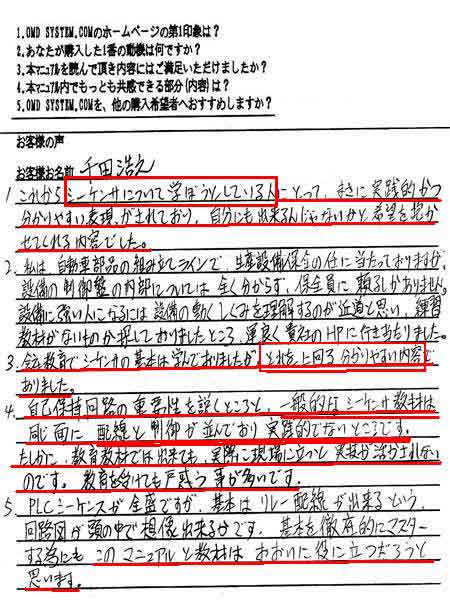 1.OMD SYSTEM.COMのホームページの第1印象は?
2.あなたが購入した1番の動機は何ですか?
3.本マニュアルを読んで頂き内容にはご満足いただけましたか?
4.本マニュアル内でもっとも共感できる部分(内容)は?
5.OMD SYSTEM.COMを、他の購入希望者へおすすめしますか?
お客様の声
お客様お名前 千田浩之
1 これから シーケンサについて学ぼうとしている人にとって、まさに実践的かつ
分かりやすい表現がされており、自分にも出来るんじゃないかと希望を抱か
せてくれる内容でした。
2. 私は自動車部品の組み立てラインで、生産設備保全の仕に当たっておりますが、
設備の制御盤の内部については全く分からず、保全員に頼るしかありません。
設備に強い人になるには設備の動くしくみを理解するのが近道と思い、練習
教材がないものか探しておりましたところ、運良く貴社のHPに行きあたりました。
3. 会社教育でシーケンサの基本は学んでおりましたが、それを上回る分かりやすい内容で
ありました。
4. 自己保持回路の重要性を説くところと、一般的なシーケンサ教材は
同じ面に配線と制御が並んでおり実践的でないところです。
たしかに、教育教材では出来ても、実際に現場に立つと実技が活かされない
のです。教育を受けても戸惑う事が多いです。
5. PLCシーケンスが全盛ですが、基本はリレー配線が出来るという、
回路図が頭の中で想像出来る分です。基本を徹底的にマスター
する為にもこのマニュアルと教材はおおいに役に立つだろうと
思います。